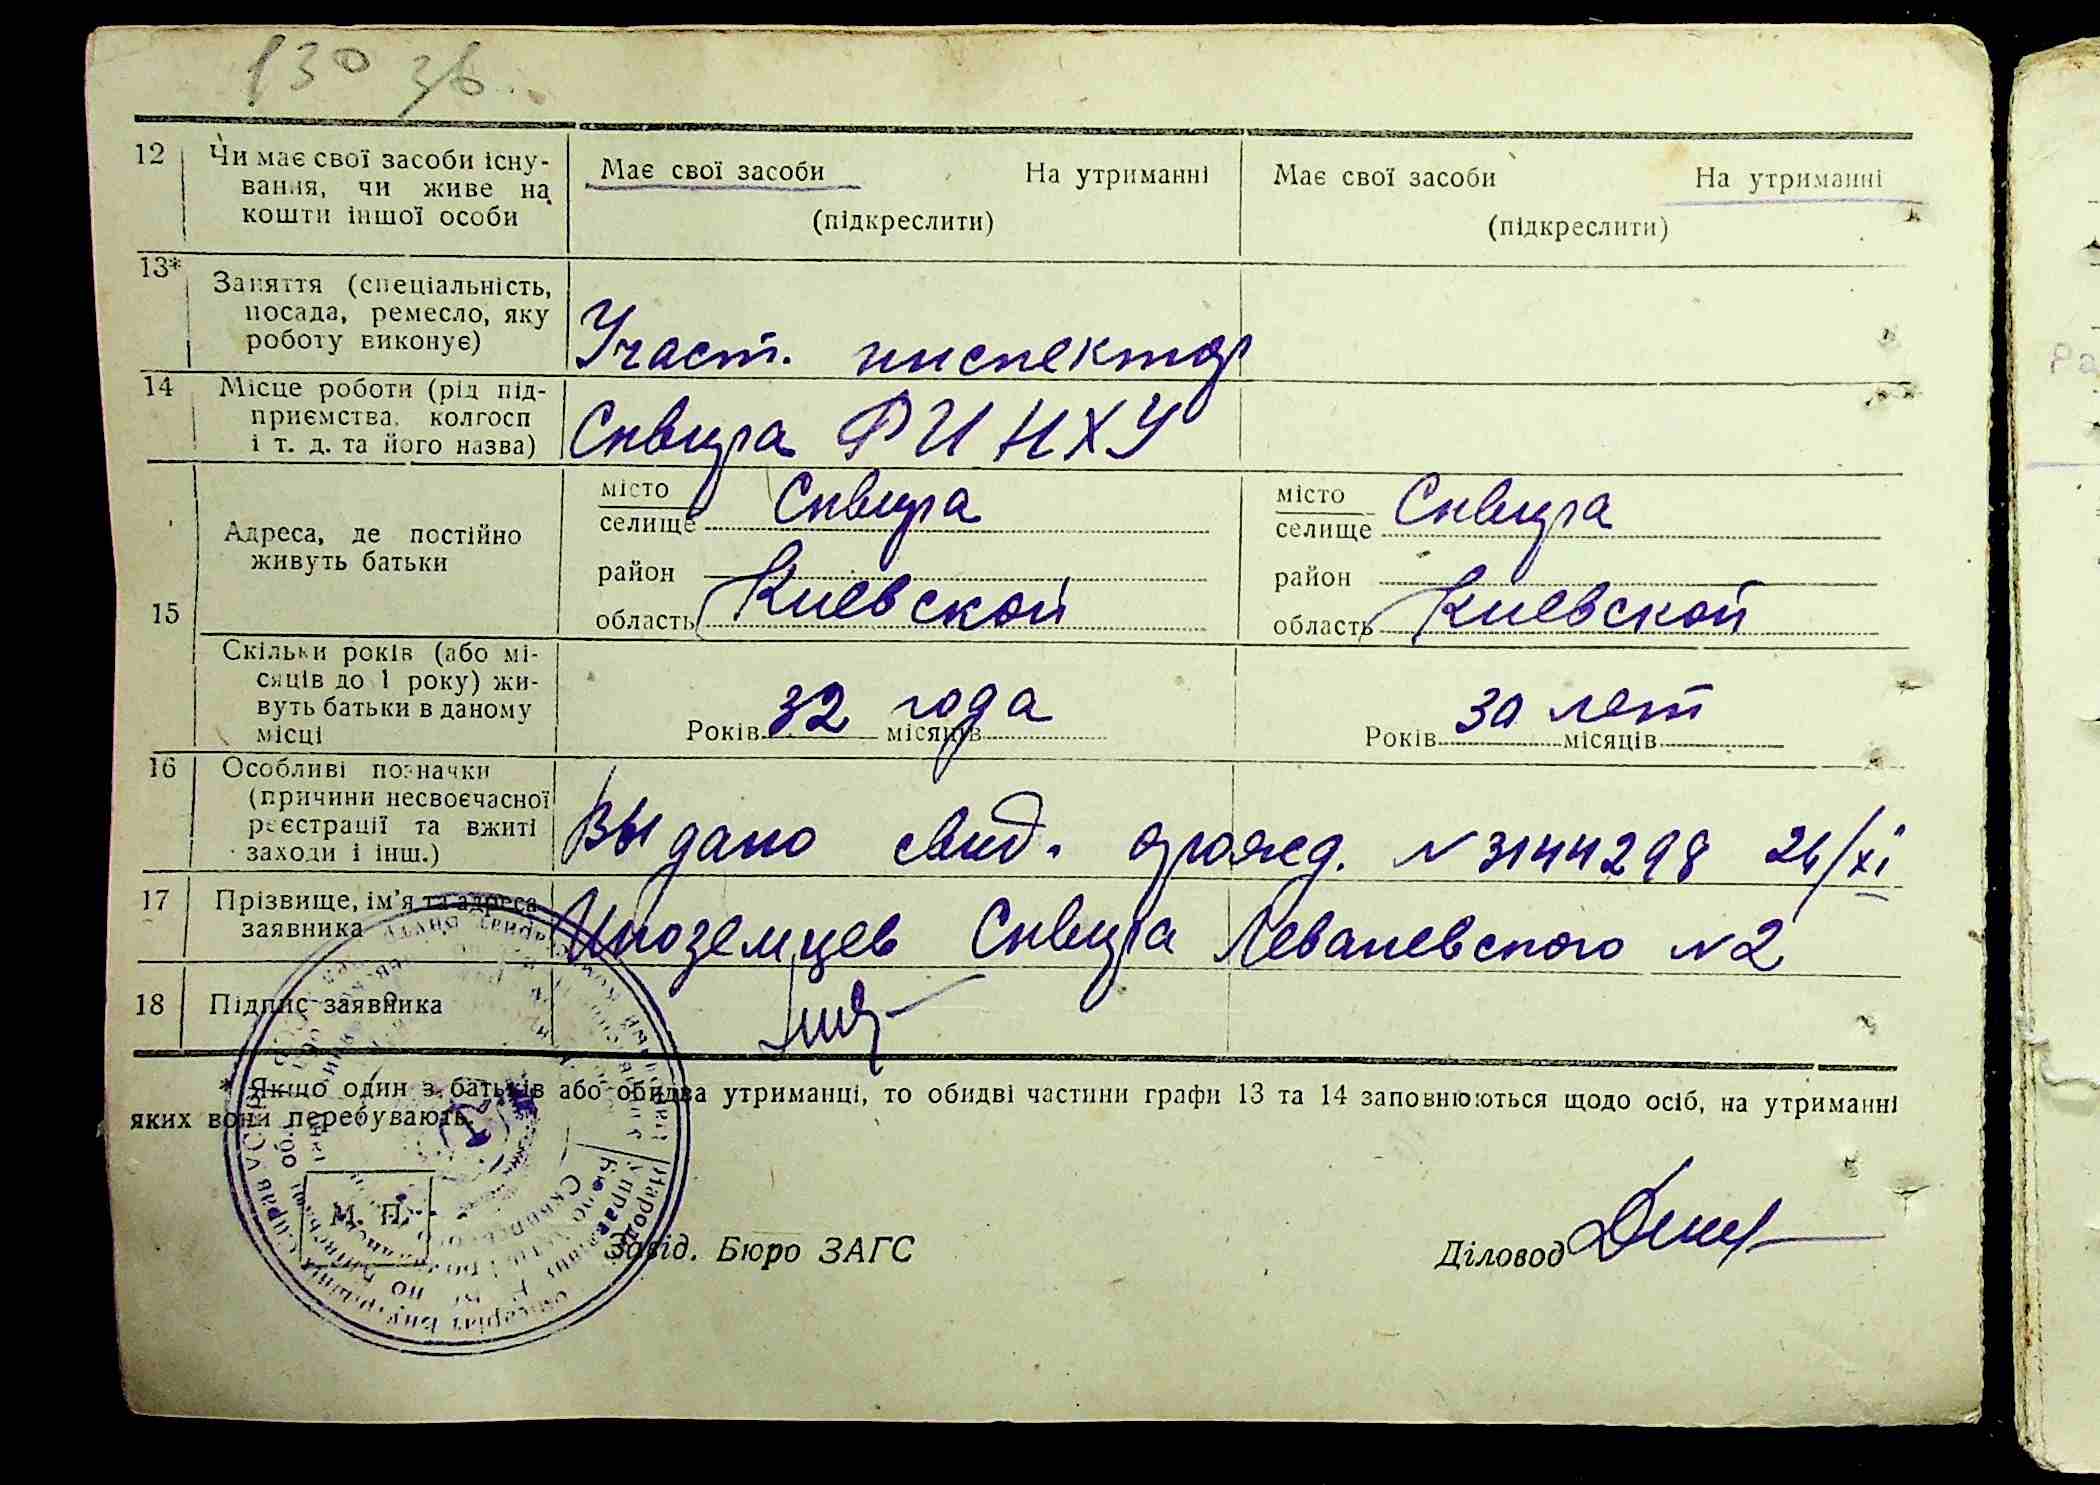 130 зв.
12 Чи має свої засоби існу-
вання, чи живе на
кошти іншої особи
Має свої засоби На утриманні
(підкреслити)
Має свої засоби На утриманні
(підкреслити)
13* Заняття (спеціальність,
посада, ремесло, яку
роботу виконує)
Участ. инспектор
14 Місце роботи (рід під-
приємства, колгосп
і т. д. та його назва)
Сквира РИНХУ
15
Адреса, де постійно
живуть батьки
місто
селище Сквира
район
область Киевской
місто
селище Сквира
район
область Киевской
Скільки років (або мі-
сяців до 1 року) жи-
вуть батьки в даному
місці
Років 32 года місяців
Років 30 лет місяців
16 Особливі позначки
(причини несвоєчасної
реєстрації та вжиті
заходи і інш.)
Выдано свид. о рожд. N 3144298 24/XI
17 Прізвище, ім'я та адреса
заявника
Иноземцев Сквира Леваневского N 2
18 Підпис заявника
* Якщо один з батьків або обидва утриманці, то обидві частини графи 13 та 14 заповнюються щодо осіб, на утриманні
яких вони перебувають.
М. П.
Завід. Бюро ЗАГС
Діловод